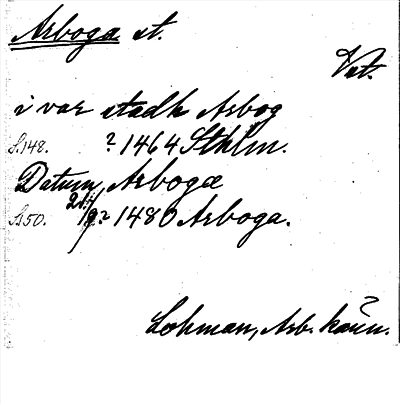 Arboga st.
Vst.
i var stadh Arbog
S.148. ? 1464 Sthlm.
Datum, Arbogæ
S.50. 24/9? 1480 Arboga.
Lohman, Arb. känn.